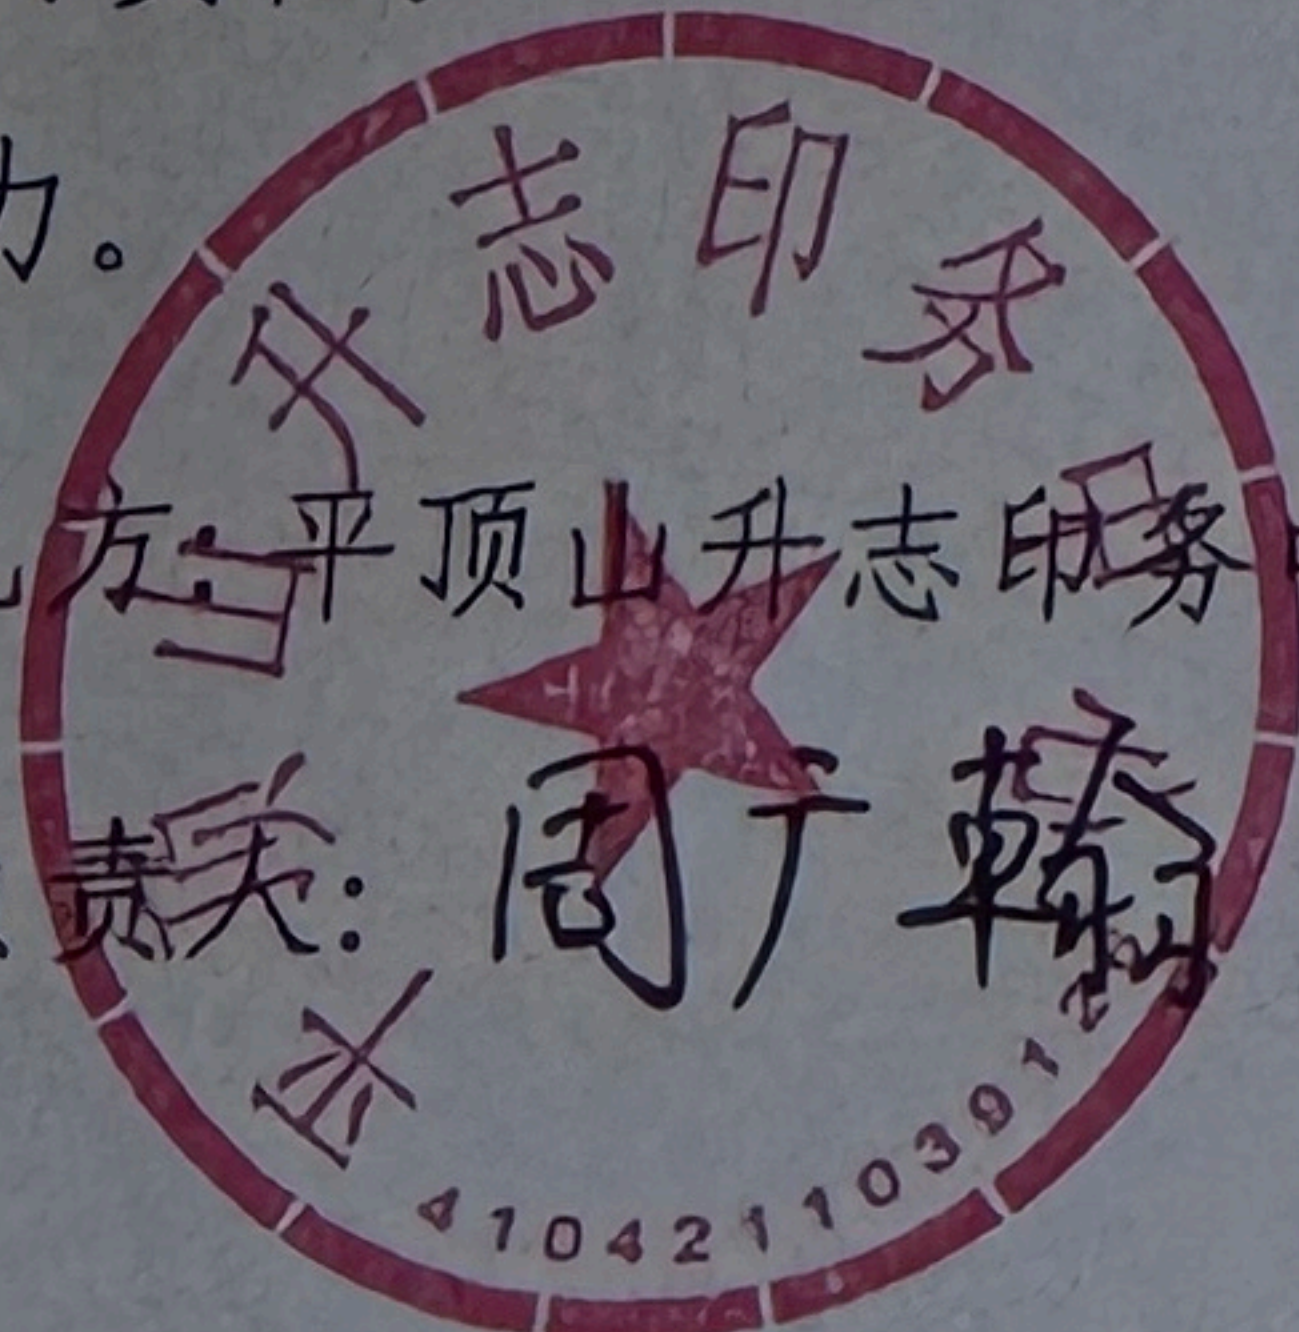 力。
方：平顶山升志印务中
责人：周广輪
平顶山升志印务中心
4104211039122